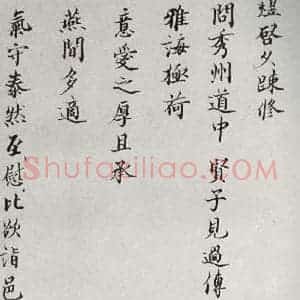 啓久疎脩
問秀州道中 賢子見過傳
雅誨極荷
意愛之厚且承
燕閒多適
氣守泰然至慰比欲詣邑
Shufaziliao.com